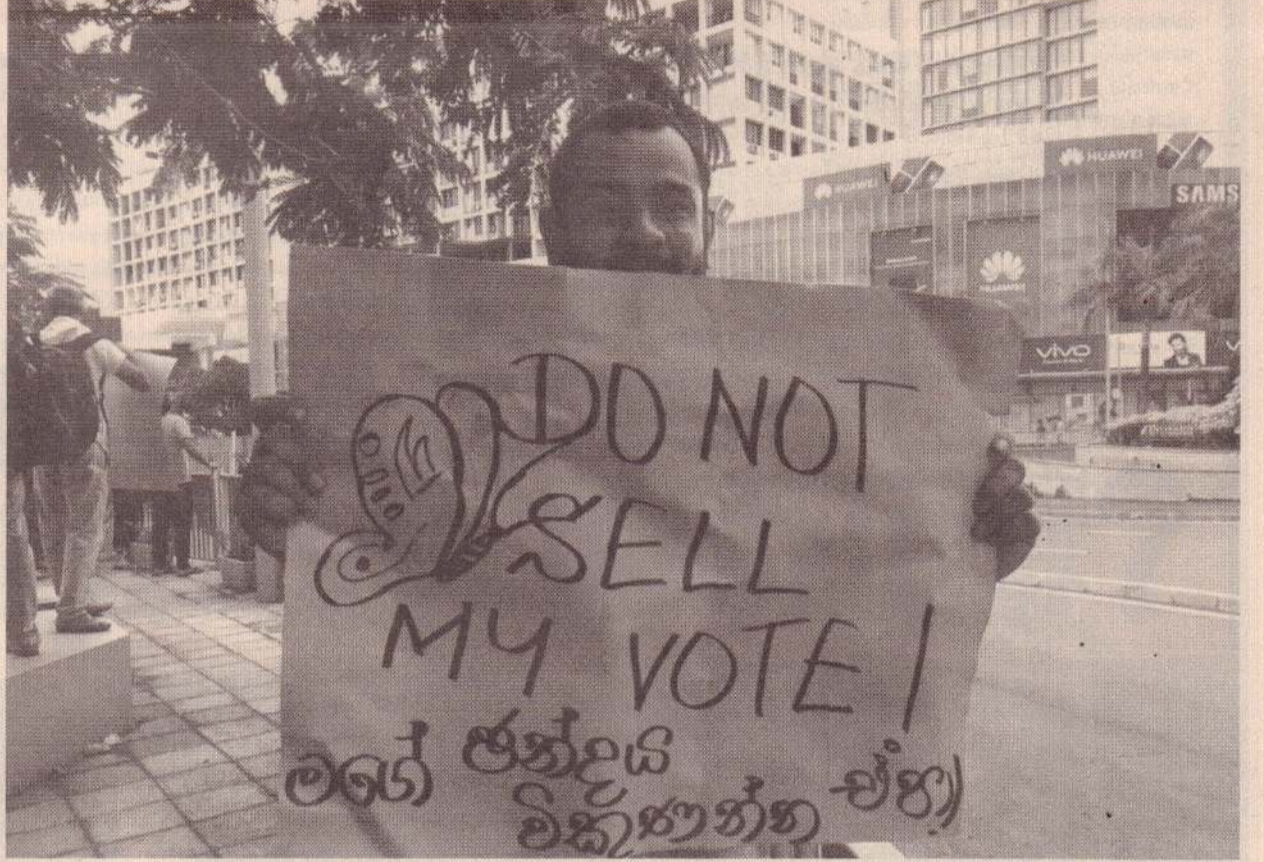 HUAWEI
HUAWEI
SAMS
HUAWEI
vivo
DO NOT
SELL
MY VOTE!
මගේ ඡන්දය
විකුණන්න එපා